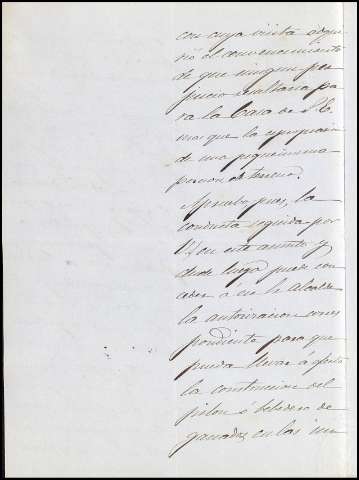 con cuya visita adqui-
rió el convencimiento
de que ningun per-
juicio resultaria pa-
ra la Casa de S. E.
mas que la apropiacion
de una pequeñisima
porcion de terreno.
Apruebo, pues, la
conducta seguida por
V. en este asunto y
desde luego puede con-
ceder á ese Sr. Alcalde
la autorizacion corres-
pondiente para que
pueda llevar á efecto
la construccion del
pilon ó bebedero de
ganados, en las in-